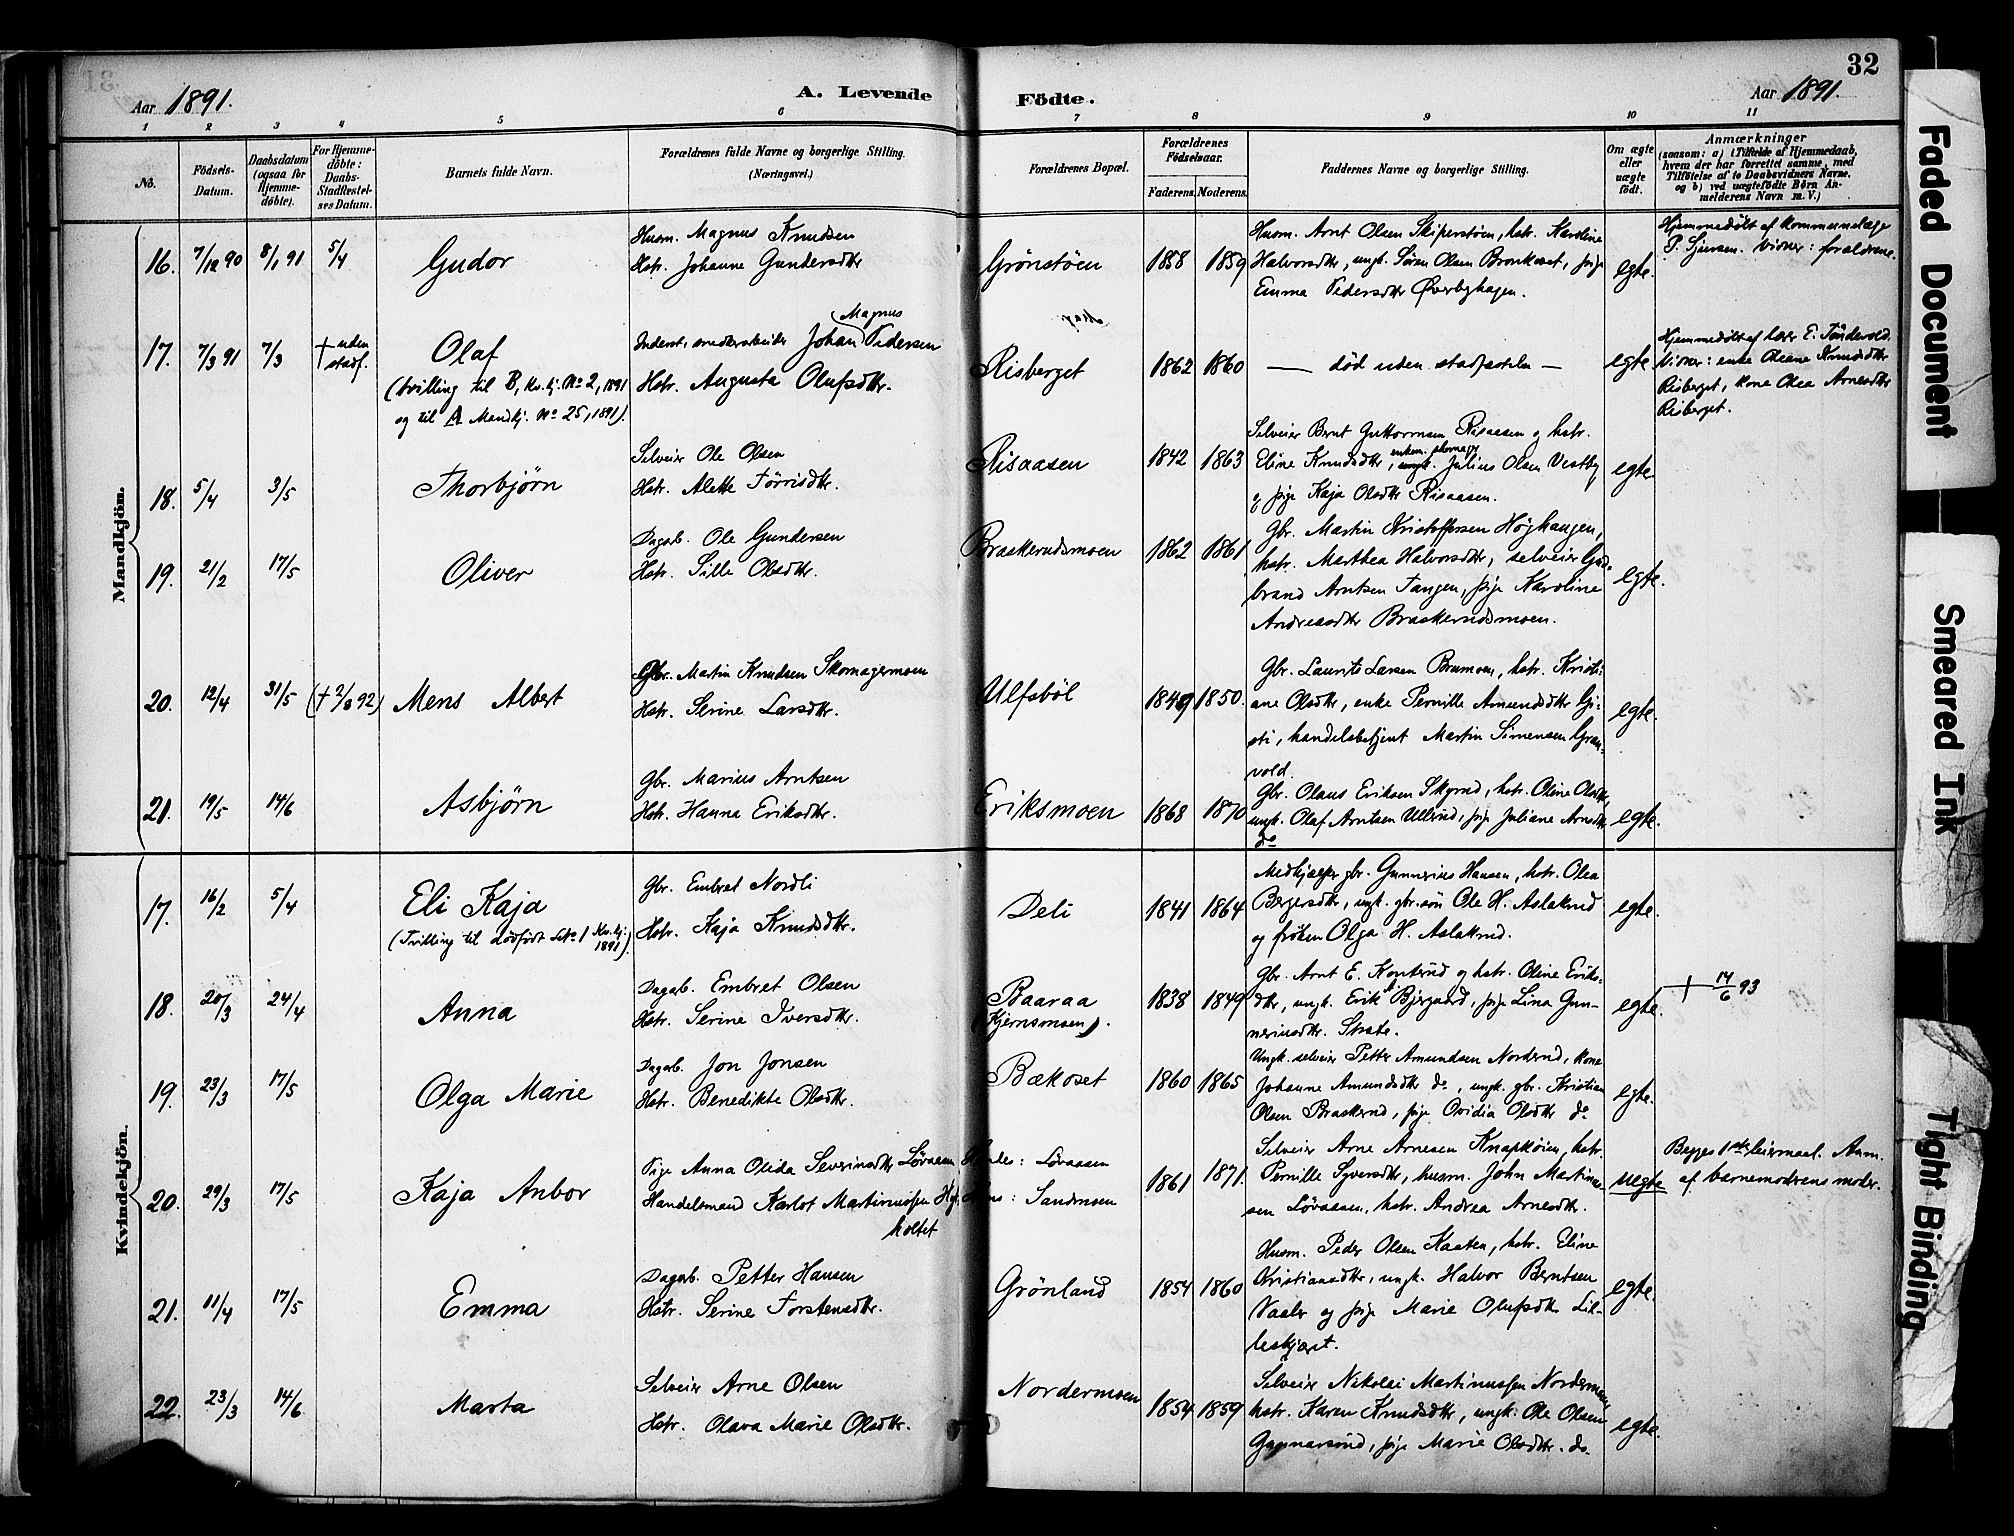 32
Aar 1891. A. Levende Födte. Aar 1891.
1 2 3 4 5 6 7 8 9 10 11
No.
Födsels-Datum.
Daabsdatum (ogsaa for Hjemme-döbte).
For Hjemme-döbte: Daabs-Stadfæstel-ses Datum.
Barnets fulde Navn.
Forældrenes fulde Navne og borgerlige Stilling.
(Næringsvei.)
Forældrenes Bopæl.
Forældrenes Födselsaar.
Faderens. Moderens.
Faddernes Navne og borgerlige Stilling.
Om ægte eller uægte födt.
Anmærkninger
(saasom: a) Tilfælde af Hjemmedaab,
hvem der har forrettet samme, med
Tilföielse af to Daabsvidners Navne.
og b) ved uægtefödte Börn An-
melderens Navn m. V.)
Mandkjön.
16. 7/12 90 8/1 91 5/4 Gudor
Husm. Magnus Knudsen
Hstr. Johanne Gundersdtr
Grönstöen 1858 1859
Husm. Arnt Olsen Skiperstöen, hstr. Karoline
Halvorsdtr, ungk. Sören Olsen Bronkoset, pige
Emma Pedersdtr Øverbyhagen.
egte.
Hjemmedöbt af kommunelæge
P. Vidner: forældrene.
17. 7/3 91 7/3 † uden stadf. Olaf
(trilling til B, Kv.kj. No 2, 1891
og til A Mandkj. No 25, 1891).
Magnus
Inderst, Johan Pedersen
Hstr. Augusta Olufsdtr.
Risberget 1862 1860
— död uden stadfæstelse —
egte
Hjemmedöbt af lærer E. Tönderold.
Vidner: enke Oleane Knudsdtr
Risberget, kone Olea Arnesdtr
Risberget.
18. 5/4 3/5 Thorbjörn
Selveier Ole Olsen
Hstr. Alette Törrisdtr.
Risaasen 1842 1863
Selveier Bernt Guttormsen Risaasen og hstr.
Eline Knudsdtr, Julius Olsen Vestby
og pige Kaja Olsdtr Risaasen.
egte.
19. 21/2 17/5 Oliver
Dagarb. Ole Gundersen
Hstr. Sille Olsdtr.
Braskerudsmoen 1862 1861
Gbr. Martin Kristoffersen Høghaugen,
hstr. Marthea Halvorsdtr, selveier Gud-
brand Arntsen Tangen, pige Karoline
Andreasdtr Braskerudsmoen.
egte.
20. 12/4 31/5 († 2/8 92) Mens Albert
Gbr. Martin Knudsen Skomagermoen
Hstr. Serine Larsdtr.
Ulfsböl 1849 1850.
Gbr. Laurits Larsen Brumoen, hstr. Kristi-
ane Olsdtr, enke Pernille Amundsdtr Gji-
sti, handelsbetjent Martin Simensen Gran-
vold.
egte.
21. 19/5 14/6 Asbjörn
Gbr. Marius Arntsen
Hstr. Hanna Eriksdtr.
Eriksmoen 1868 1870
Gbr. Olaus Eriksen Skyrud, hstr. Oline Olsdtr,
ungk. Olaf Arntsen Ullerud, pige Juliane Arnesdtr
do
egte.
Kvindekjön.
17. 16/2 5/4 Eli Kaja
(Tvilling til dödfödt No 1 Kv.kj. 1891).
Gbr. Embret Nordli
Hstr. Kaja Knudsdtr.
Deli 1841 1864
Medhjælper gbr. Gunnerius Hansen, hstr. Olea
Bergersdtr, ungk. gbr.sön Ole H. Aslakrud
og fröken Olga H. Aslakrud.
egte.
18. 20/3 24/4 Anna
Dagarb. Embret Olsen
Hstr. Serine Iversdtr.
Baaraa
(Kjernsmoen). 1838 1849
Gbr. Arnt E. Konterud og hstr. Oline Eriks-
dtr, ungk. Erik Bjergaard, pige Lina Gun-
neriusdtr. Strate.
egte.
† 14/6 93
19. 23/3 17/5 Olga Marie
Dagarb. Jon Jonsen
Hstr. Benedikte Olsdtr.
Bækoset 1860 1865
Ungk. selveier Petter Amundsen Norderud, kone
Johanne Amundsdtr do, ungk. gbr. Kristian
Olsen Braskerud, pige Ovidia Olsdtr do
egte.
20. 29/3 17/5 Kaja Anbor
Pige Anna Olida Severinsdtr Løvaasen
Handelsmand Karlot Martinussen
holtet
: Løvaasen
: Sandmoen
1861 1871.
Selveier Arne Arnesen Knapkøien, hstr.
Pernille Syversdtr, husm. John Martinus-
sen Løvaasen, hstr. Andrea Arnesdtr.
uegte
Begges 1ste leiermaal. Anm.
af barnemoderens moder.
21. 11/4 17/5 Emma
Dagarb. Petter Hansen
Hstr. Serine Torstensdtr.
Grönland 1854 1860
Husm. Peder Olsen Kaaten, hstr. Eline
Kristiansdtr, ungk. Halvor Berntsen
Vaaler og pige Marie Olufsdtr Lil-
leskjæret.
egte.
22. 23/3 14/6 Marta
Selveier Arne Olsen
Hstr. Olava Marie Olsdtr.
Nordermoen 1854 1859
Selveier Nikolai Martinussen Nordermoen,
hstr. Karen Knudsdtr, ungk: Ole Olsen
Gunnarsrud, pige Marie Olsdtr. do.
egte.
Faded Document
Smeared Ink
Tight Binding